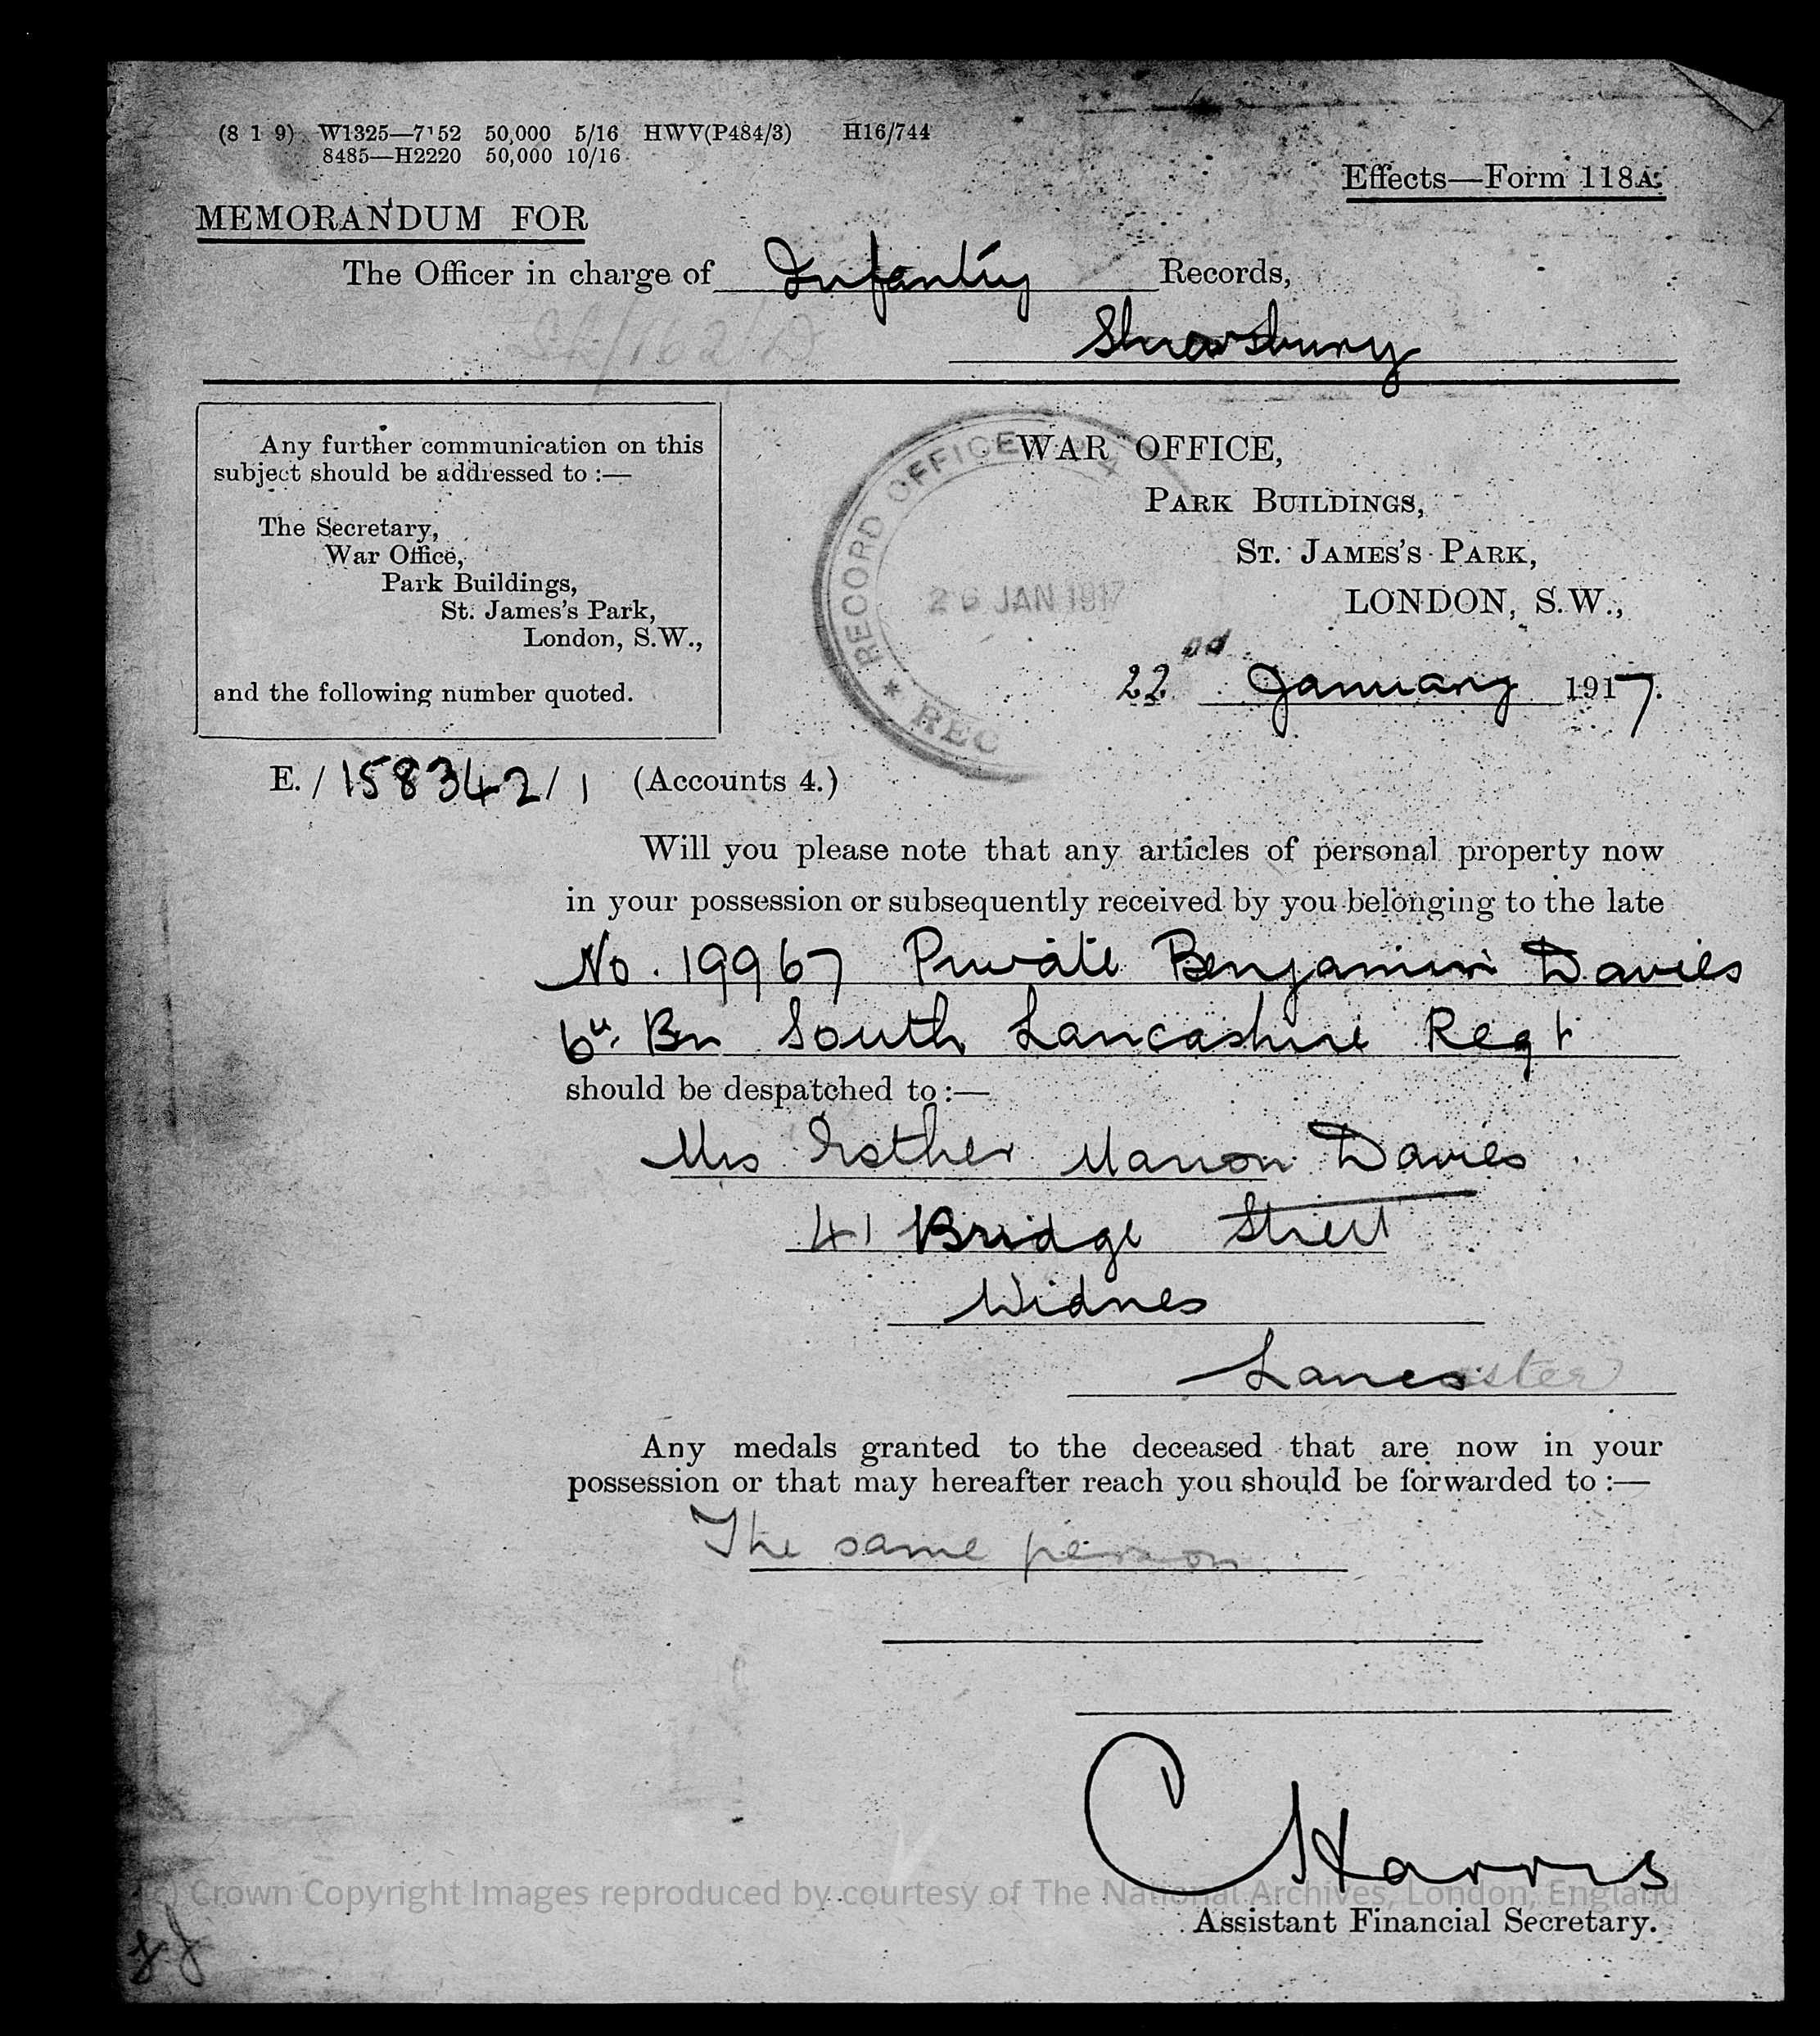 (8 1 9) W1325—7152 50,000 5/16 HWV(P484/3) H16/744
8485—H2220 50,000 10/16
Effects—Form 118A.
MEMORANDUM FOR
The Officer in charge of Infantry Records,
Shrewsbury
Any further communication on this
subject should be addressed to :—
The Secretary,
War Office,
Park Buildings,
St. James's Park,
London, S.W.,
and the following number quoted.
RECORD OFFICE
26 JAN 1917
* REC
WAR OFFICE,
PARK BUILDINGS,
ST. JAMES'S PARK,
LONDON, S.W.,
22nd January 1917.
E. / 158342/1 (Accounts 4.)
Will you please note that any articles of personal property now
in your possession or subsequently received by you belonging to the late
No. 19967 Private Benjamin Davies
6th Bn South Lancashire Regt
should be despatched to :—
Mrs Esther Marion Davies
41 Bridge Street
Widnes
Lancaster
Any medals granted to the deceased that are now in your
possession or that may hereafter reach you should be forwarded to :—
The same person
C Harris
(c) Crown Copyright Images reproduced by courtesy of The National Archives, London, England
Assistant Financial Secretary.